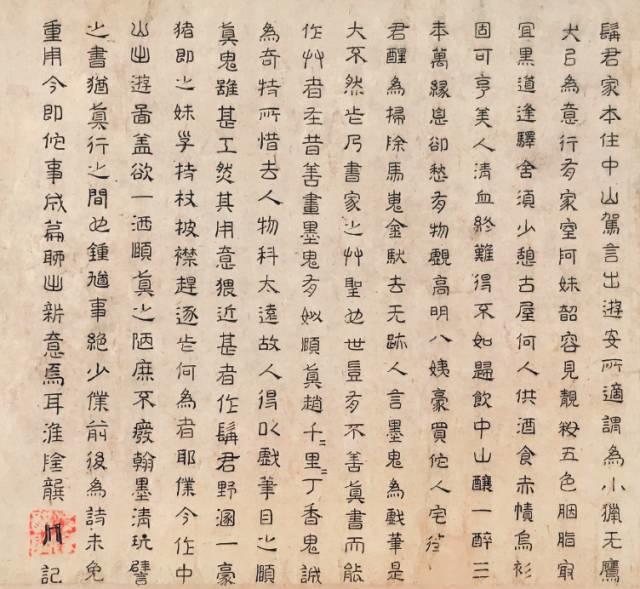 髯君家本住中山駕言出遊安所適謂為小獵无鷹
犬㠯為意行有家室阿妹韶容見靚妝五色胭脂最
宜黑道逢驛舍須少憩古屋何人供酒食赤幘烏衫
固可亨美人清血終難得不如歸飲中山釀一醉三
年萬緣息卻愁有物覷高明八姨豪買他人宅
君醒為掃除馬嵬金馱去无跡人言墨鬼為戲筆是
大不然此乃書家之艸聖也世豈有不善真書而能
作艸者在昔善畫墨鬼有姒頤真趙千〻里〻丁香鬼誠
為奇特所惜去人物科太遠故人得以戲筆目之頤
真鬼雖甚工然其用意猥近甚者作髯君野溷一豪
豬即之妹子持杖披襟趕逐此何為者耶僕今作中
山出遊圖蓋欲一洒頤真之陋庶不廢翰墨清玩譬
之書猶真行之間也鍾馗事絕少僕前後為詩未免
重用今即他事成篇聊出新意焉耳淮陰龔記